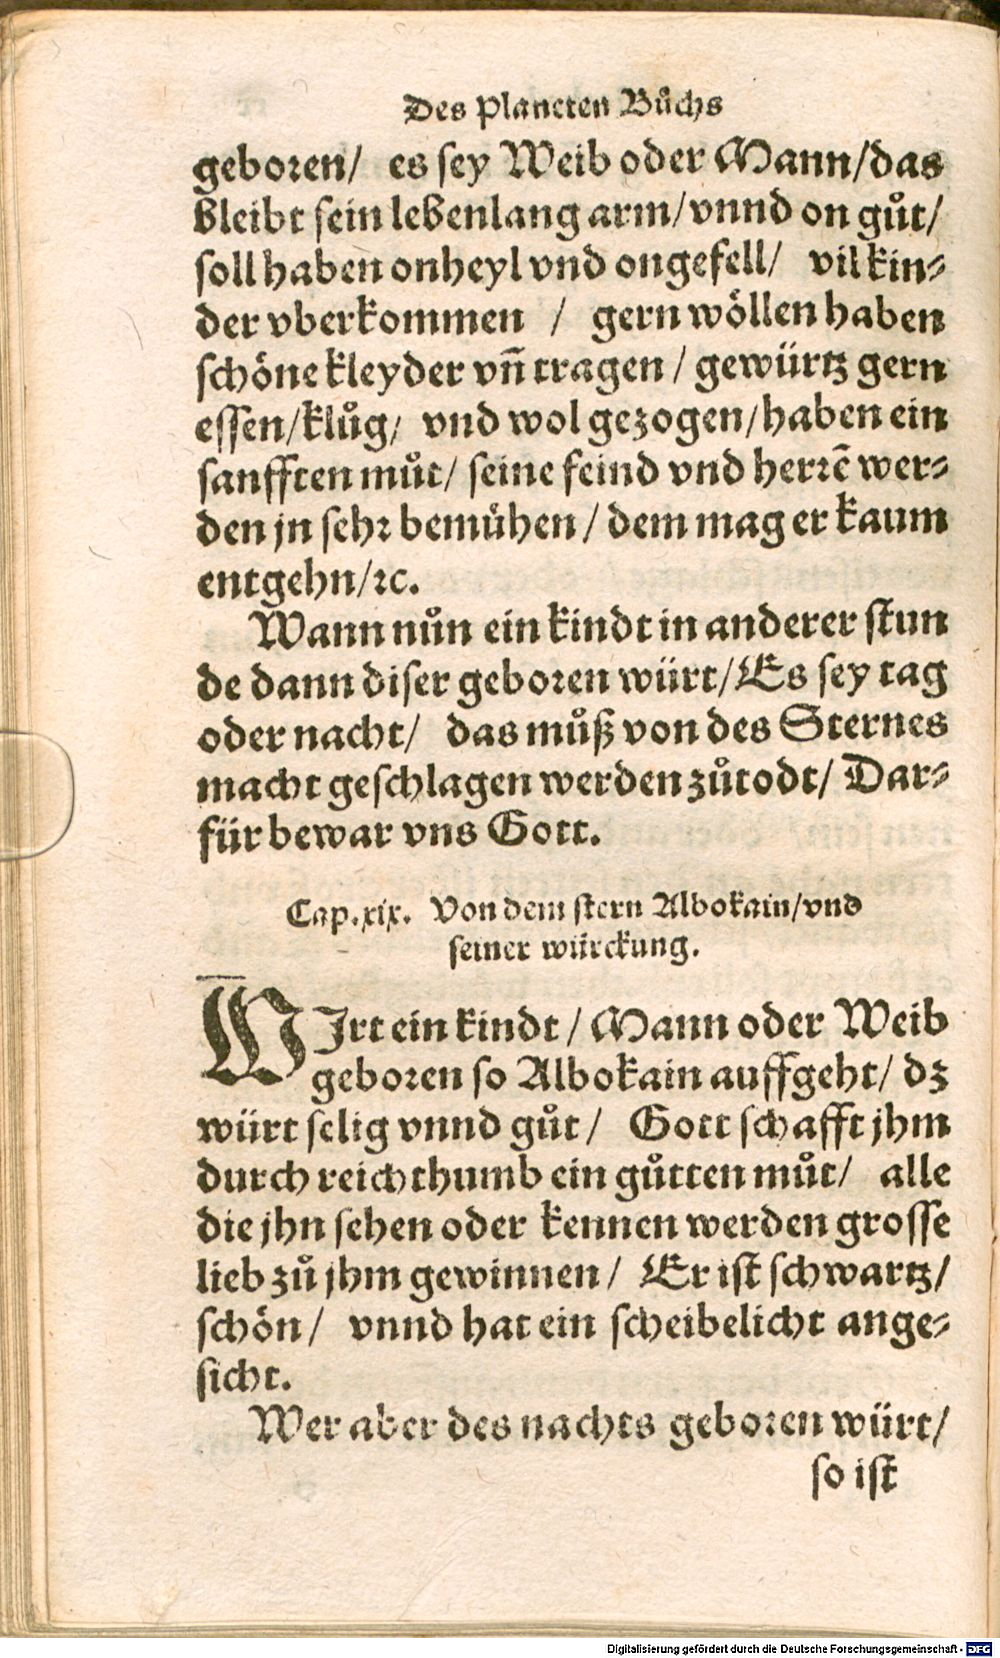 Des Planeten Bůchs
geboren/ es sey Weib oder Mann/das
bleibt sein lebenlang arm/vnnd on gůt/
soll haben onheyl vnd ongefell/ vil kin⸗
der vberkommen / gern wöllen haben
schöne kleyder vñ tragen / gewürtz gern
essen/klůg/ vnd wol gezogen/haben ein
sanfften můt/ seine feind vnd herrē wer⸗
den jn sehr bemühen / dem mag er kaum
entgehn/ꝛc.
Wann nůn ein kindt in anderer stun
de dann diser geboren würt/Es sey tag
oder nacht/ das můß von des Sternes
macht geschlagen werden zůtodt/ Dar⸗
für bewar vns Gott.
Cap.xix. Von dem stern Albokain/vnd
seiner würckung.
WIrt ein kindt / Mann oder Weib
geboren so Albokain auffgeht/ dz
würt selig vnnd gůt / Gott schafft jhm
durch reichthumb ein gůtten můt/ alle
die jhn sehen oder kennen werden grosse
lieb zů jhm gewinnen / Er ist schwartz/
schön / vnnd hat ein scheibelicht ange⸗
sicht.
Wer aber des nachts geboren würt/
so ist
Digitalisierung gefördert durch die Deutsche Forschungsgemeinschaft - DFG